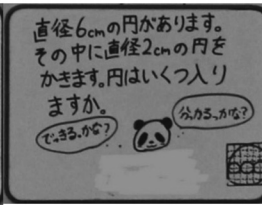 直径6cmの円があります。
その中に直径2cmの円を
かきます。円はいくつ入り
ますか。
でっきる、かな?
分、かる、っかな?